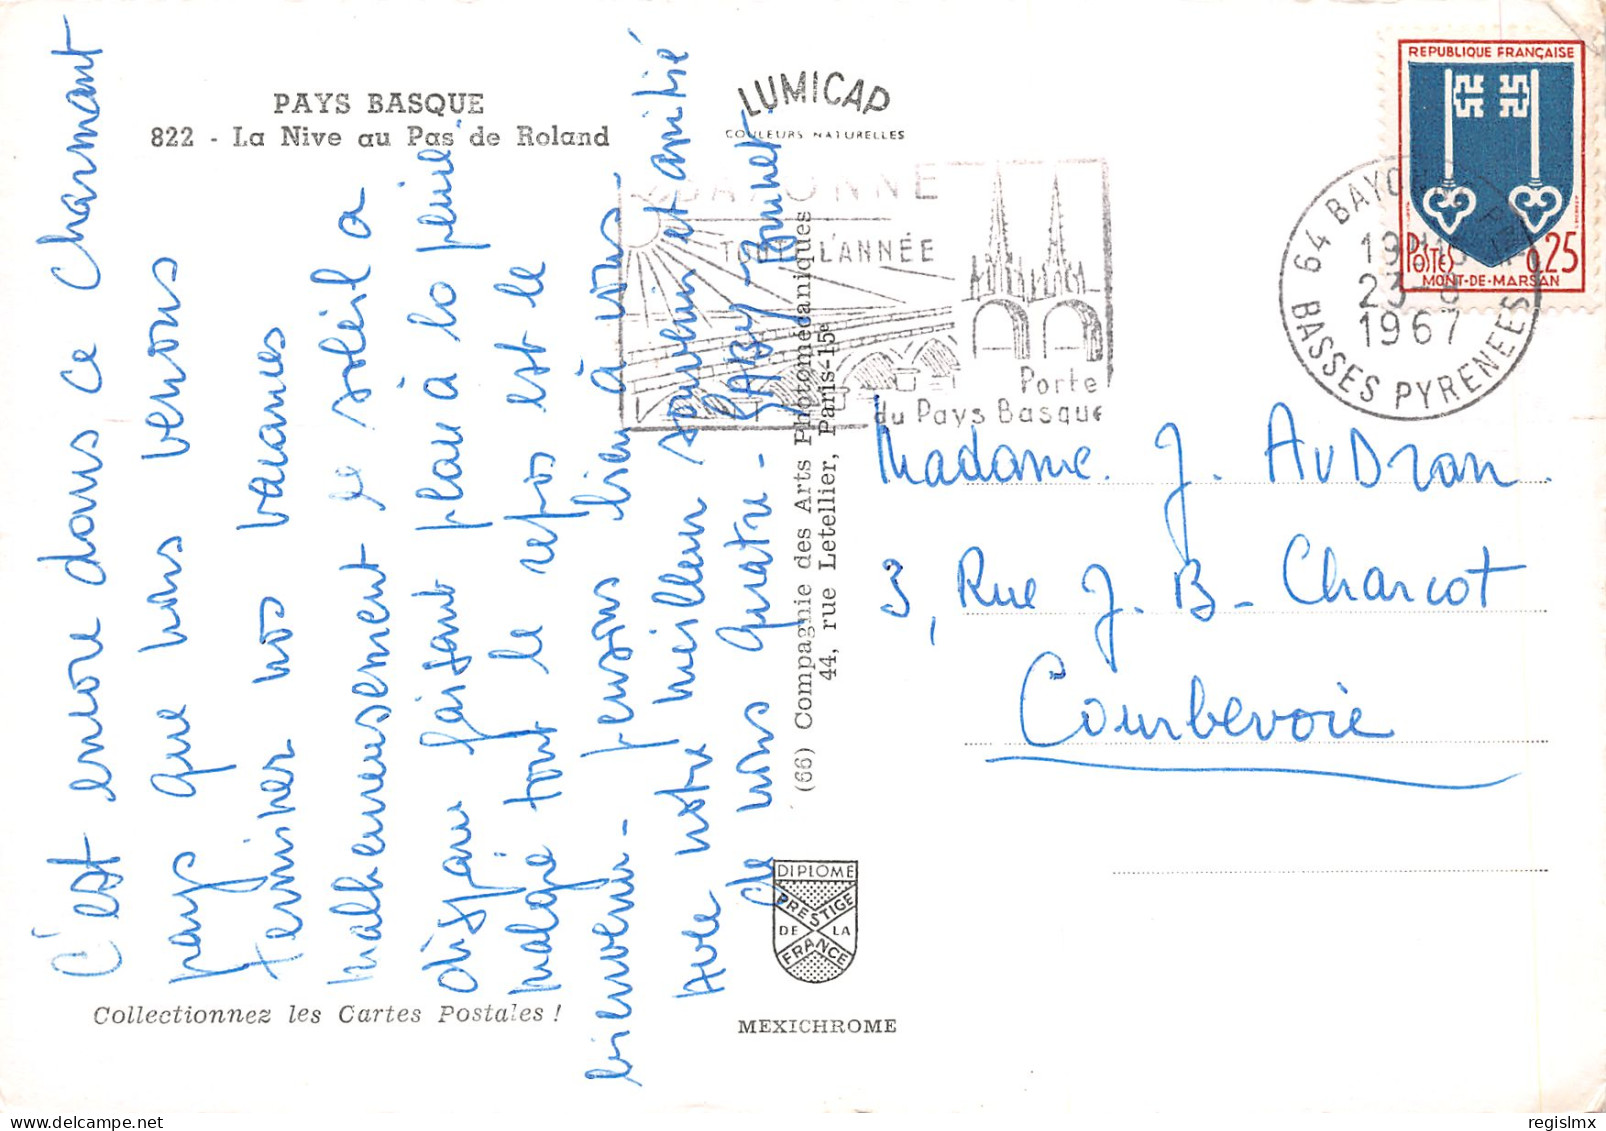 PAYS BASQUE
822 - La Nive au Pas de Roland
LUMICAP
COULEURS NATURELLES
C'est encore dans ce charmant
pays que nous venons
terminer nos vacances
malheureusement le soleil a
disparu faisant place à la pluie
malgré tout le repos est le
bienvenu - pensons bien à vous -
Avec notre meilleur souvenir et amitié
de nous quatre -
BAYONNE
TOUTE L'ANNÉE
Porte
du Pays Basque
(66) Compagnie des Arts Photomécaniques
44, rue Letellier, Paris-15e
REPUBLIQUE FRANÇAISE
POSTES
0,25
MONT-DE-MARSAN
64 BAYONNE
23-8
1967
BASSES PYRENEES
Madame. J. AuDran.
3, Rue J. B- Charcot
Courbevoie
DIPLOME
PRESTIGE
DE LA
FRANCE
Collectionnez les Cartes Postales !
MEXICHROME
regislmx